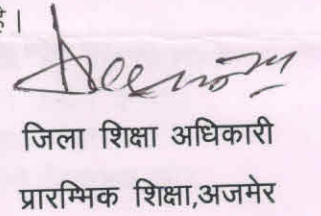 है।
जिला शिक्षा अधिकारी
प्रारम्भिक शिक्षा,अजमेर